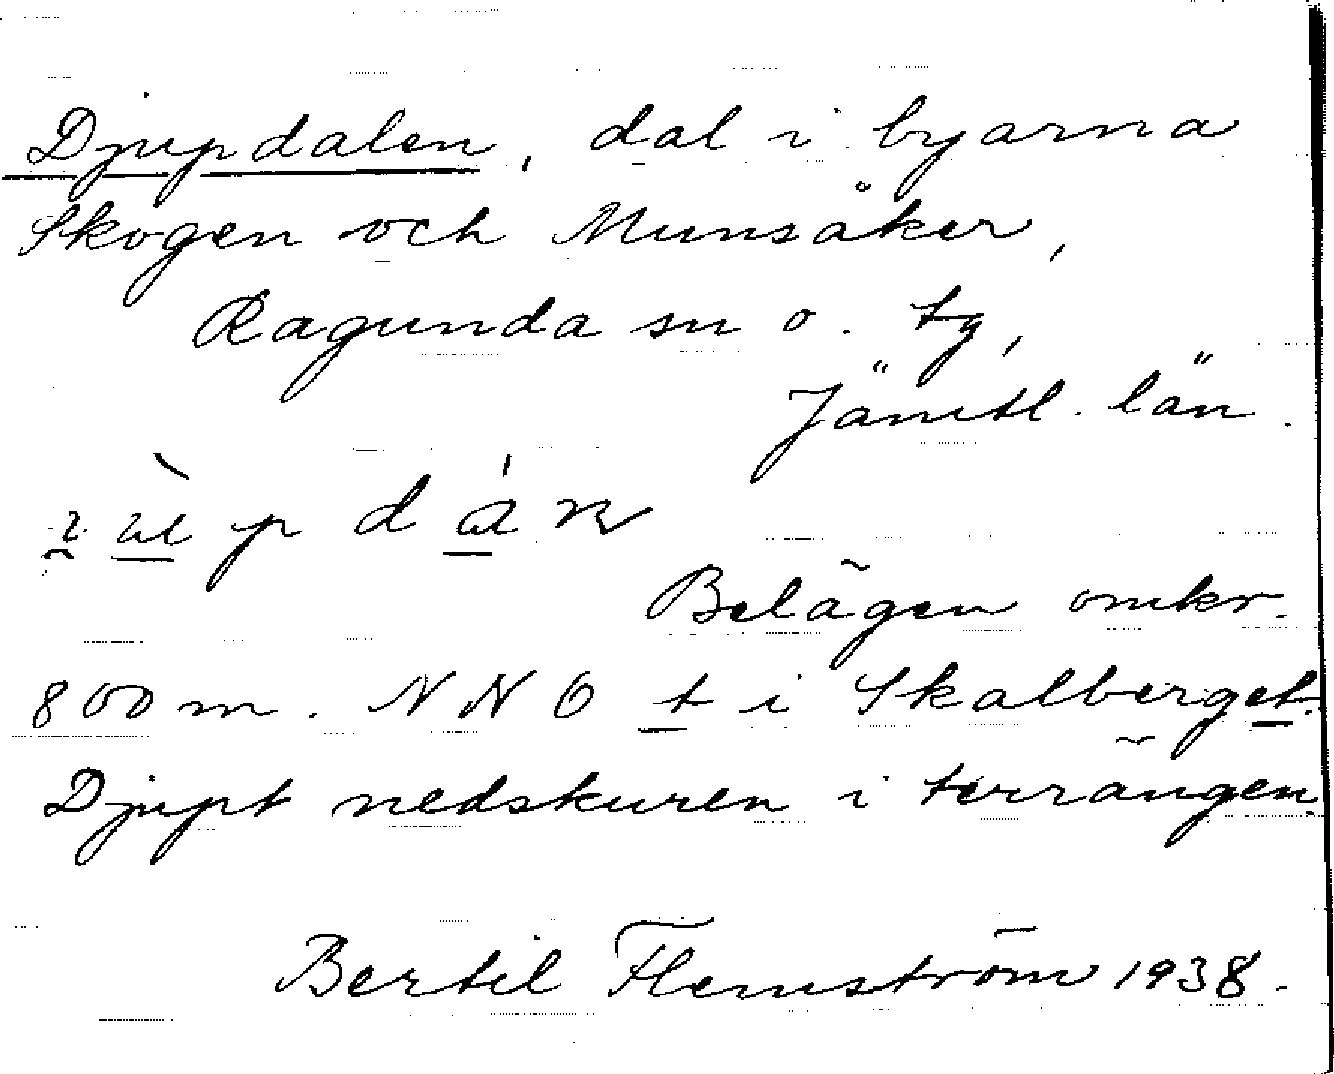 Djupdalen, dal i byarna
Skogen och Munsåker,
Ragunda sn o. tg,
Jämtl. län.
Belägen omkr.
800 m. NNO t i Skalberget.
Djupt nedskuren i terrängen.
Bertil Flemström 1938.